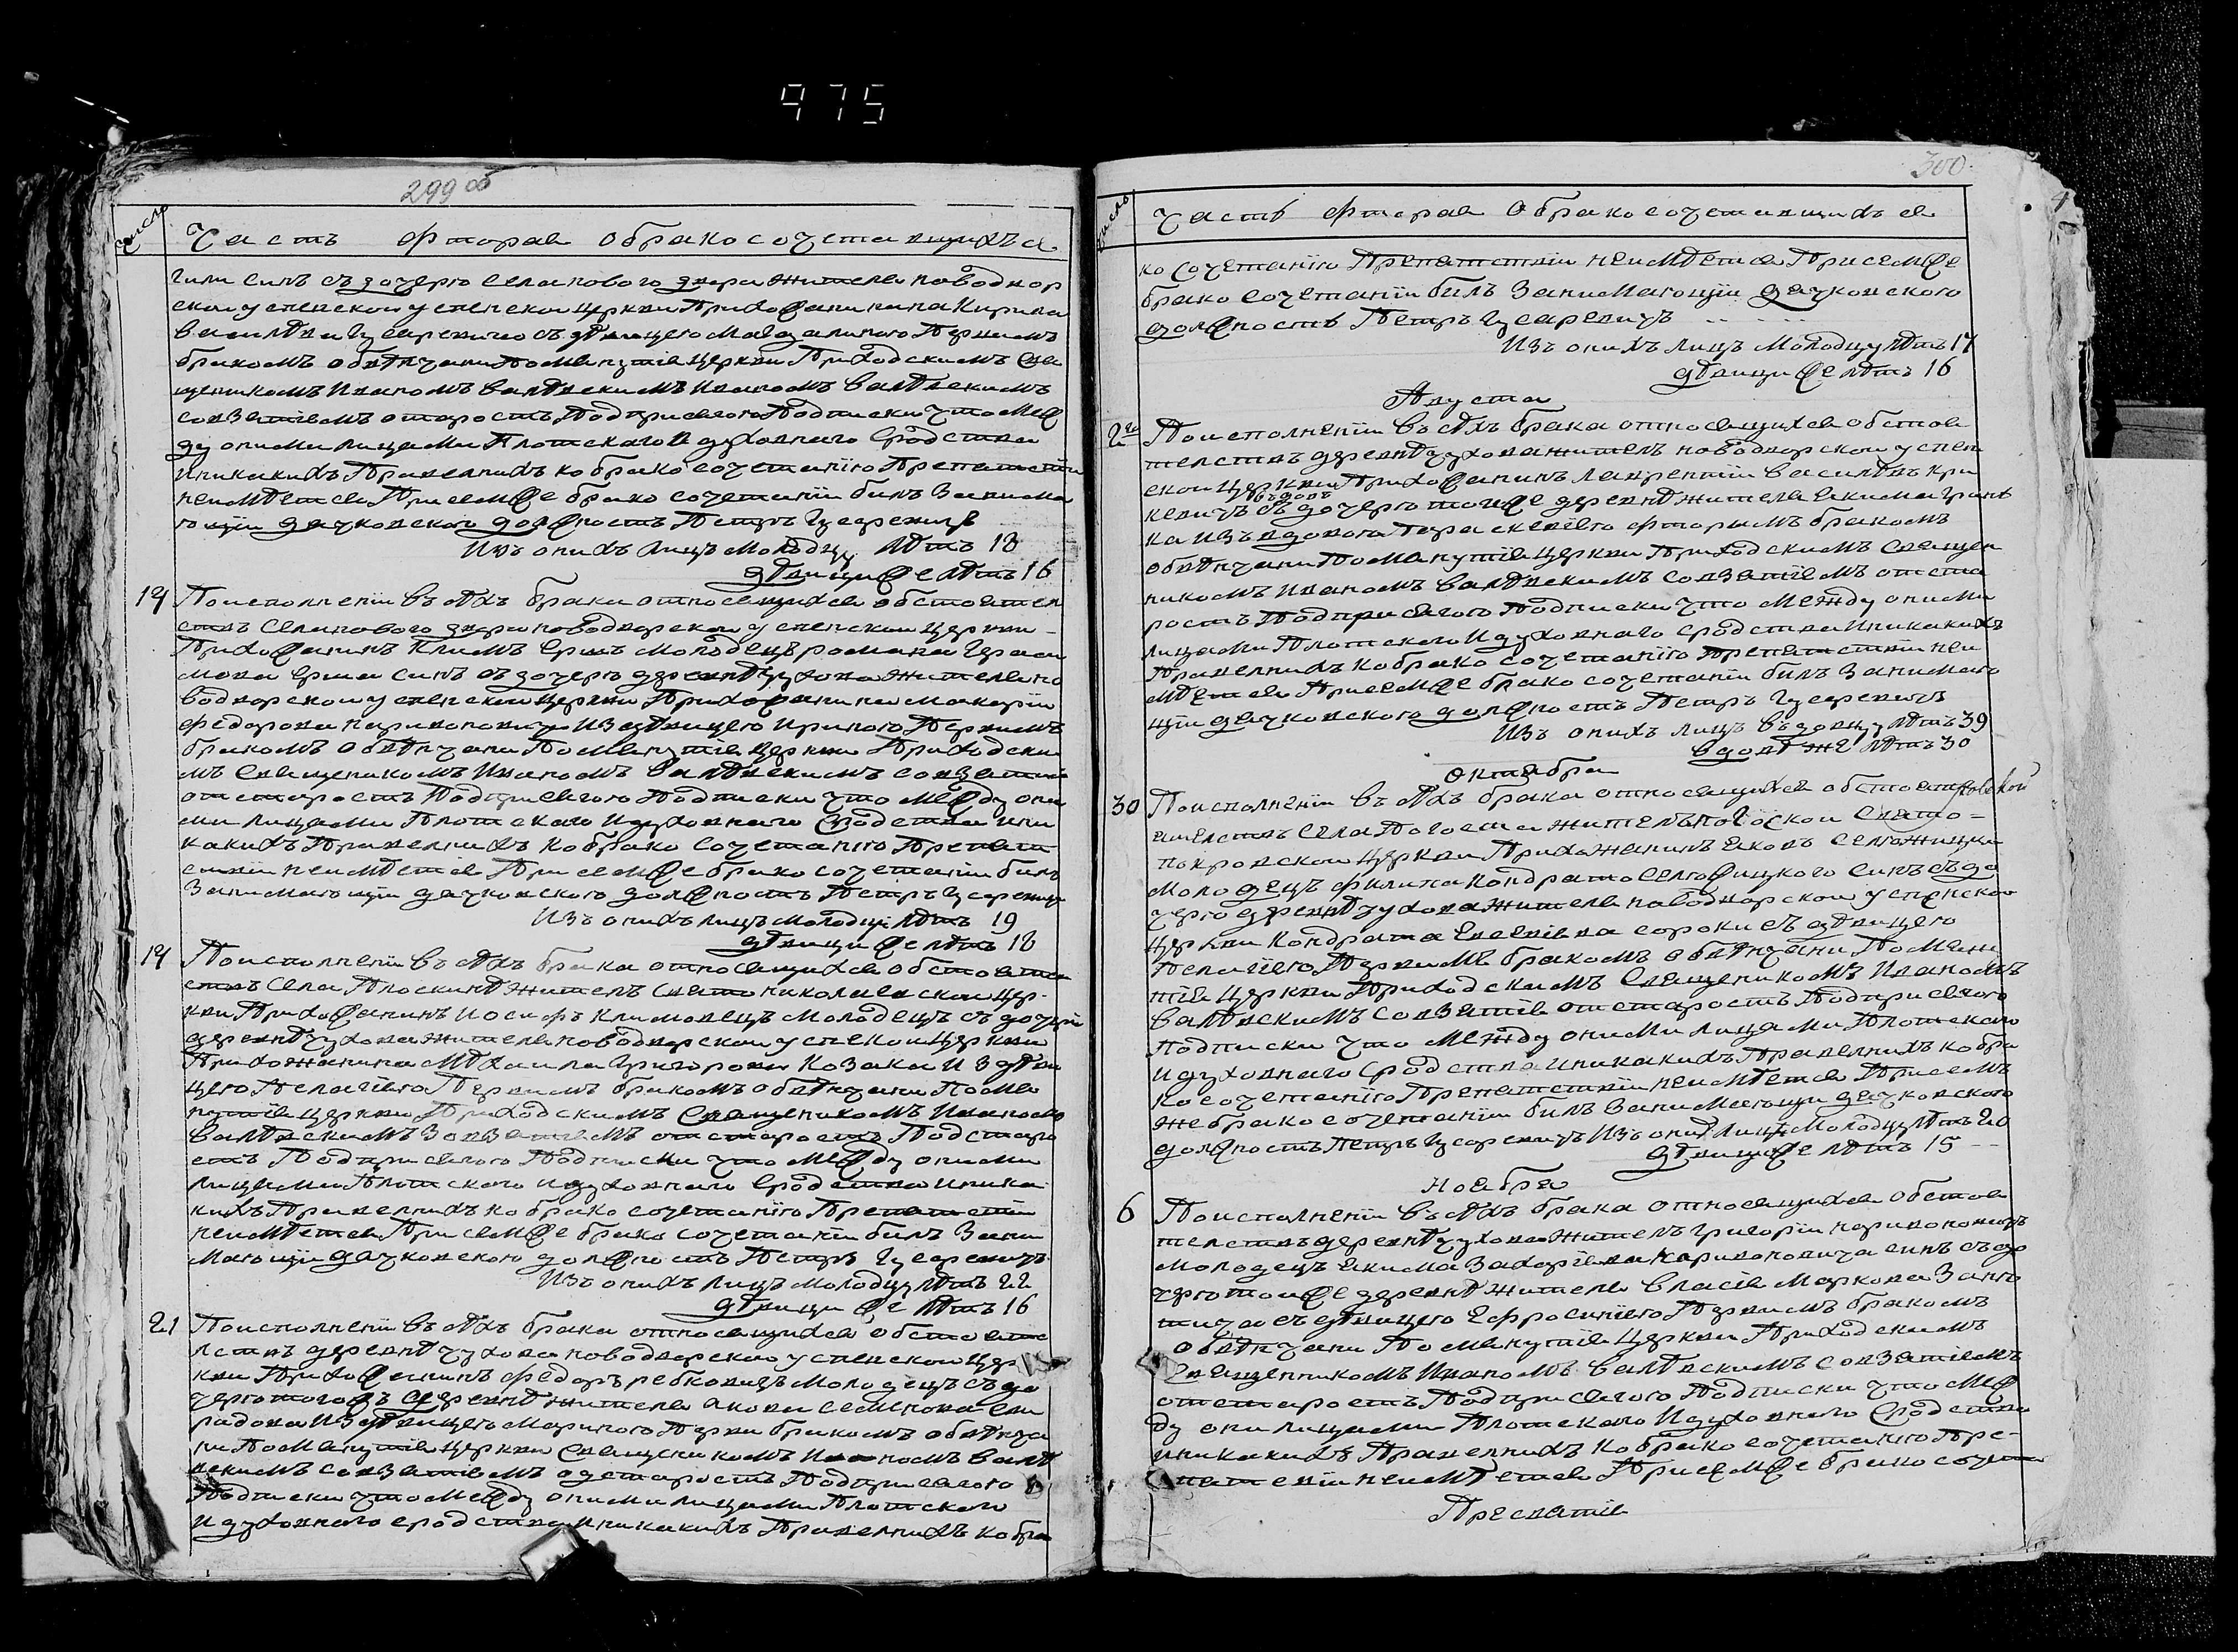 975
299 об
число
Часть фторая О бракосочетавщихъся
гили синъ съ дочерю Села нового двора жителя новоднор
скои успенскои успенскои церкви Прихожанина Кирила
Василѣва Гусаревича съ дѣвицею Магдалиною Первимъ
бракомъ обвѣнчани Помянутія церкви Приходскимъ Свя
щеникомъ Иваномъ Валѣвскимъ Иваномъ Валѣвскимъ
совзятіемъ отстаростъ Подприсягою Подписки что меж
ду оними лицами Плотскаго и духовнаго Сродства
Иникакихъ Правелнихъ ко брако сочетанію Препятствіи
неимѣется При семже брако сочетаніи билъ Занима
ющіи дячковского должность Петръ Гусаревичъ
Изъ онихъ лицъ молодцу лѣтъ 18
дѣвици же лѣтъ 16
14 Поисполненіи въсѣхъ брака относящихся обстоятел
ствъ Села нового двора новодворскои успенскои церкви
Прихожанинъ Климъ Ершъ молодецъ романа Гераси
мова Ерша синъ съ дочерю деревнѣ чухова жителя но
водворскои успенскои церкви Прихожанина Макарія
Федорова наривоновича Из дѣвицею Ириною Первимъ
бракомъ обвѣнчани Помянутія церкви Приходски
мъ Священикомъ Иваномъ Валѣвскимъ совзятіе
отстаростъ Подприсягою Подписки что между они
ми лицами Плотскаго Идуховнаго Сродства Ини
какихъ Правелнихъ ко брако Сочетанію Препят
ствіи неимѣется При семже брако сочетаніи билъ
Занимающіи дячковского должность Петръ Гусаревичъ
Изъ онихъ лицъ молодци лѣтъ 19
дѣвици же лѣтъ 18
14 Поисполненіи въсѣхъ брака относящихся обстояте
ствъ Села Плоскинѣ жителъ Святониколаевскои цер
кви Прихожанинъ Иосифъ Климовецъ Молодецъ съ дочерю
деревнѣ чухова жителя новодворскои успскои церкви
Прихожанина Мѣхаила Григорова Козака Из дѣви
цею Пелагіею Первимъ бракомъ обвѣнчани Помя
нутія церкви Приходскимъ Священикомъ Иваномъ
Валѣвскимъ Зовзятіемъ отстаростъ Подстаро
стъ Подприсягою Подписки что между оними
лицами Плотского Идуховнаго Сродства иника
кихъ Правелнихъ ко брако сочетанію Препятствіи
неимѣется При семже брако сочетаніи билъ Зани
мающіи дячковского должность Петръ Гусаревичъ
Изъ онихъ лицъ молодцу лѣтъ 22
дѣвици же лѣтъ 16
21 Поисполненіи въсѣхъ брака относящихся обстояте
лствъ деревнѣ чухова новодворскои успенскои цер
кви Прихожанинъ Федоръ ребковицъ молодецъ съ до
черю тогожъ деревнѣ жителя Якова Семенова
Из дѣвицею Мариною Перви бракомъ обвѣнча
ни Помянутія церкви Священикомъ Иваномъ Валѣ
вскимъ совзятіемъ одстаростъ Подприсягою
Подписки что между оними лицами Плотского
И духовнаго сродства иникакихъ Правелнихъ ко бра
300
число
Часть фторая О бракосочетавшихъся
ко сочетанію Препятствіи неимѣется При семже
брако сочетаніи билъ Занимающіи дячковского
должность Петръ Гусаревичъ
Изъ онихъ лицъ молодцу лѣтъ 17
дѣвици же лѣтъ 16
Августа
2го Поисполненіи въсѣхъ брака относящихся обстоя
телствъ деревнѣ чухова жителъ новодворскои успен
скои церкви Прихожанинъ Лаврентіи Василѣвъ Кри
въдовъ
кевичъ съ дочерю тогоже деревнѣ жителя Якима Гринѣ
ка Изъ вдовою Параскевіею фторимъ бракомъ
обвѣнчани Помянутія церкви Приходскимъ Священ
никомъ Иваномъ Валѣвскимъ совзятіемъ отста
ростъ Подприсягою Подписки что между оними
лицами Плотского Идуховнаго Сродства Иникакихъ
Правелнихъ ко брако сочетанію Препятствіи неи
мѣется При семже брако сочетаніи билъ Занимаю
щіи дячковского должность Петръ Гусаревичъ
Изъ онихъ лицъ въдовцу лѣтъ 39
вдовѣ же лѣтъ 30
октября
30 Поисполненіи въсѣхъ брака относящихся обстоят
ятелствъ Села Погоста жителъ погоской Свято-
покровскои церкви Прихожанинъ Яковъ Селюжицки
молодецъ Филипа Кондрато Селюжицкого синъ съ до
черю деревнѣ чухова жителя новодворскои успенскои
церкви Кондрата Евсеіева сороки съ дѣвицею
Пелагіею Первимъ бракомъ обвѣнчани Помяну
тія церкви Приходскимъ Священикомъ Иваномъ
Валѣвскимъ совзятіе отстаростъ Подприсягою
Подписки что между оними лицами Плотскаго
И духовнаго Сродства иникакихъ Правелнихъ ко бра
ко сочетанію Препятствіи неимѣется При семъ
же брако сочетаніи билъ Занимающи дячковского
должность Петръ Гусаревичъ Изъ онихъ лицъ молодцу лѣтъ 20
дѣвици же лѣтъ 15
Ноября
6 Поисполненіи въсѣхъ брака относящихся обстоя
телствъ деревнѣ чухова жителъ Григоріи наривоновичъ
молодецъ Якима Захаріева наривоновича синъ съ до
черю тоиже деревнѣ жителя Власія Маркова
съ дѣвицею Ефросиніею Первимъ бракомъ
обвѣнчани Помянутія церкви Приходскимъ
Священникомъ Иваномъ Валѣвскимъ совзятіемъ
отстаростъ Подприсягою Подписки что меж
ду они лицами Плотскаго Идуховнаго Сродства
иникакихъ Правелнихъ ко брако сочетанію Пре-
пятствіи неимѣется При семже брако сочета
Пресвятія